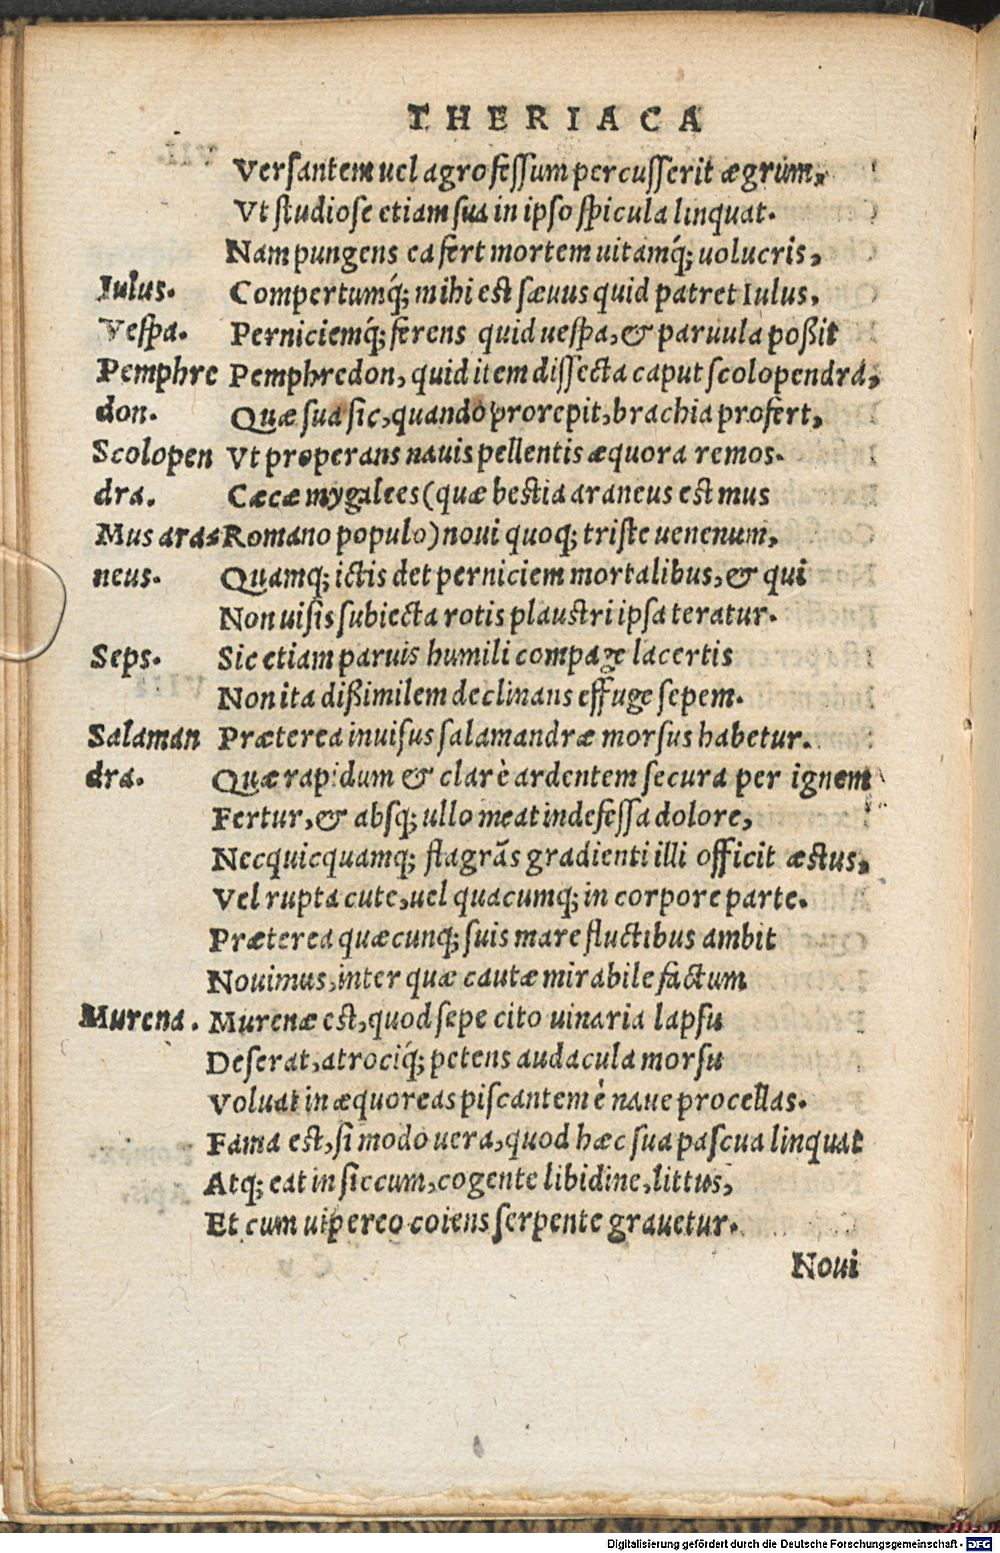 THERIACA
Versantem uel agro fessum percusserit ægrum,
Vt studiose etiam sua in ipso spicula linquat.
Nam pungens ea fert mortem uitamq́; uolucris,
Iulus. Compertumq́; mihi est sæuus quid patret Iulus,
Vespa. Perniciemq́; ferens quid uespa, & paruula poßit
Pemphre Pemphredon, quid item dissecta caput scolopendra,
don. Quæ sua sic, quando prorepit, brachia profert,
Scolopen Vt properans nauis pellentis æquora remos.
dra. Cæcæ mygalees (quæ bestia araneus est mus
Mus ara= Romano populo) noui quoq; triste uenenum,
neus. Quamq; ictis det perniciem mortalibus, & qui
Non uisis subiecta rotis plaustri ipsa teratur.
Seps. Sic etiam paruis humili compage lacertis
Non ita dißimilem declinans effuge sepem.
Salaman Præterea inuisus salamandræ morsus habetur.
dra. Quæ rapidum & clarè ardentem secura per ignem
Fertur, & absq; ullo meat indefessa dolore,
Nec quicquamq; flagrãs gradienti illi officit æstus,
Vel rupta cute, uel quacumq; in corpore parte.
Præterea quæcunq; suis mare fluctibus ambit
Nouimus, inter quæ cautæ mirabile factum
Murena. Murenæ est, quod sepe cito uinaria lapsu
Deserat, atrociq́; petens audacula morsu
Voluat in æquoreas piscantem è naue procellas.
Fama est, si modo uera, quod hæc sua pascua linquat
Atq; eat in siccum, cogente libidine, littus,
Et cum uipereo coiens serpente grauetur.
Noui
Digitalisierung gefördert durch die Deutsche Forschungsgemeinschaft - DFG